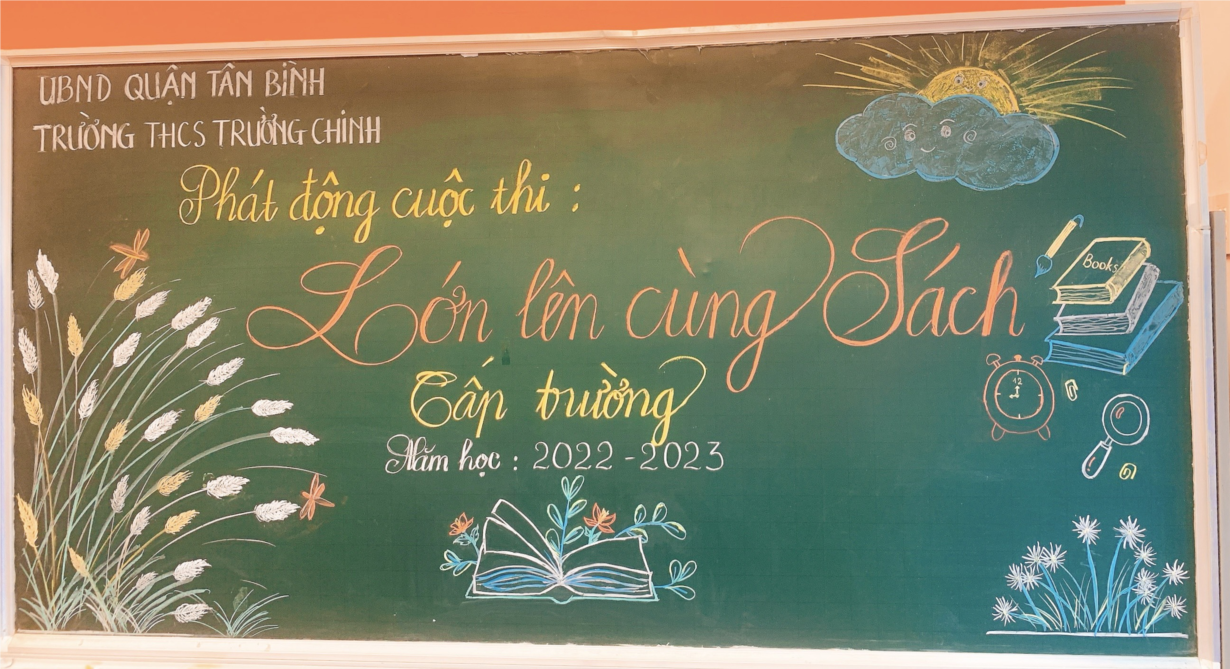 UBND QUẬN TÂN BÌNH
TRƯỜNG THCS TRƯỜNG CHINH
Phát động cuộc thi :
Lớn lên cùng Sách
Cấp trường
Năm học : 2022 - 2023
Books
12